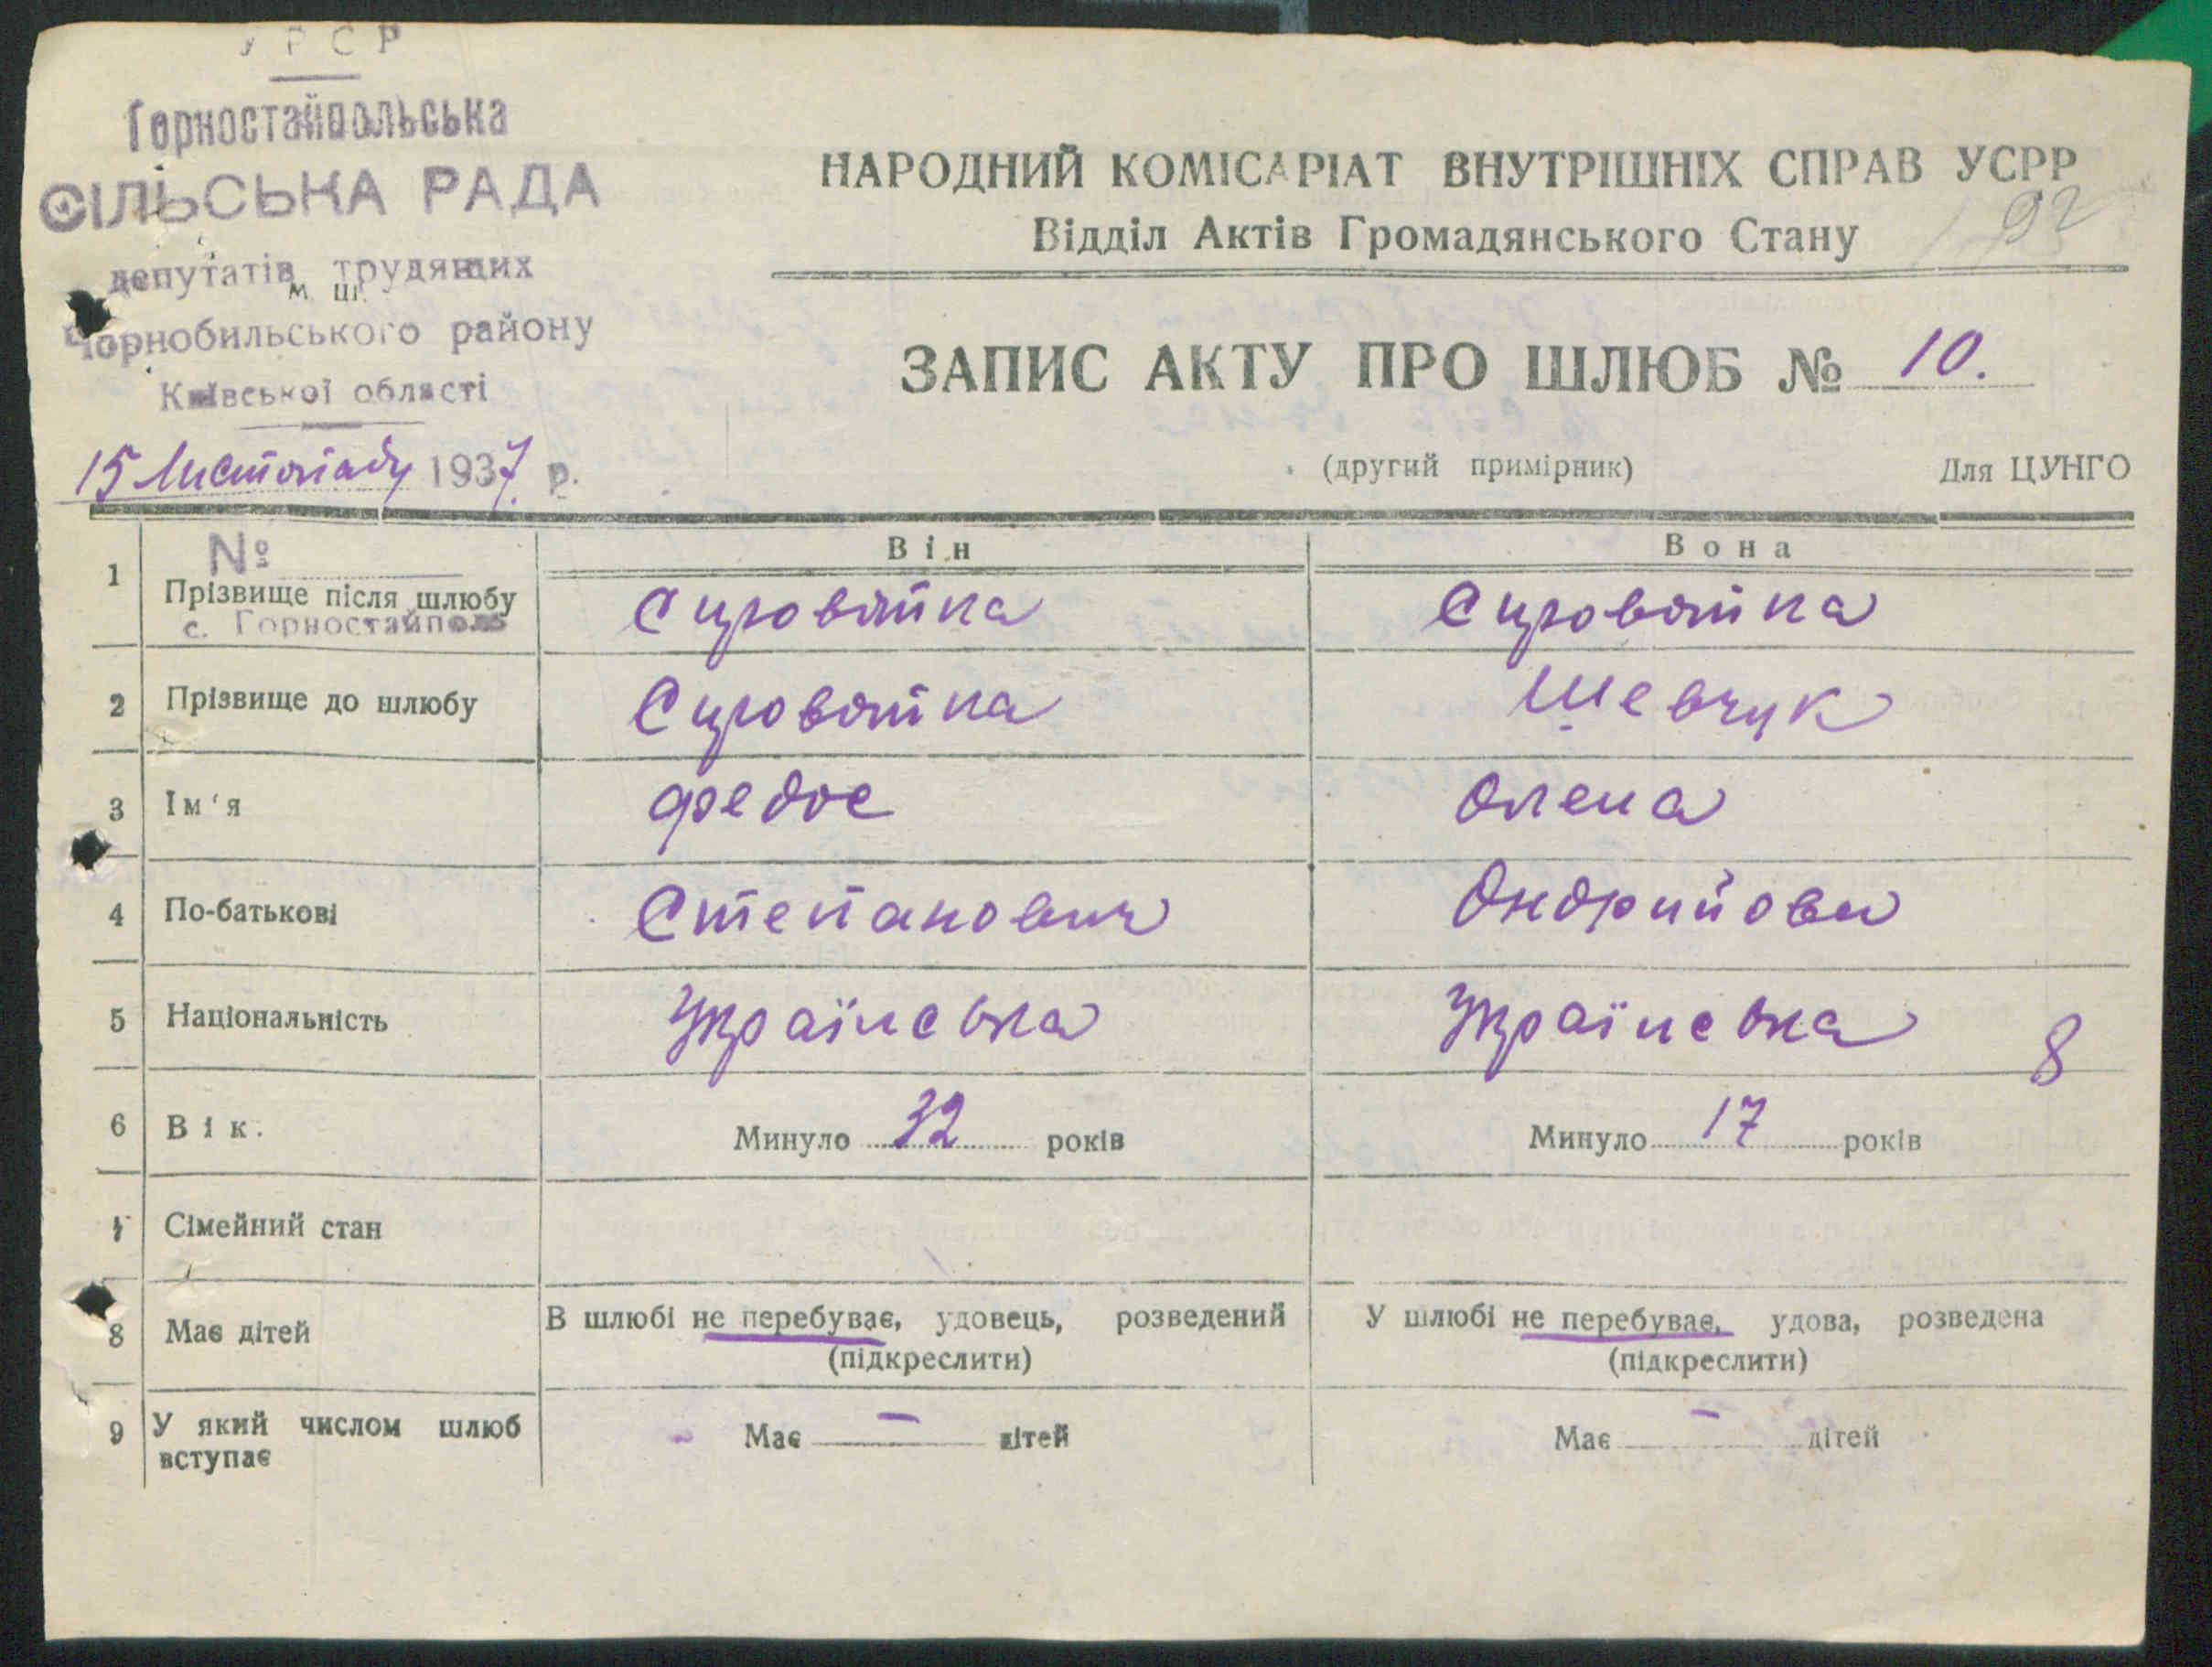 УРСР
Горностайпольська
СІЛЬСЬКА РАДА
депутатів трудящих
м. ш.
Чорнобильського району
Київської області
15 Листопаду 1937 р.
№
с. Горностайполь
НАРОДНИЙ КОМІСАРІАТ ВНУТРІШНІХ СПРАВ УСРР
Відділ Актів Громадянського Стану
92
ЗАПИС АКТУ ПРО ШЛЮБ № 10.
(другий примірник) Для ЦУНГО
Він Вона
1 Прізвище після шлюбу Сировятка Сировятка
2 Прізвище до шлюбу Сировятка Шевчук
3 Ім'я Федос Олена
4 По-батькові Степанович Ондрийови
5 Національність Українська Українська 8
6 Вік. Минуло 32 років Минуло 17 років
7 Сімейний стан
8 Має дітей В шлюбі не перебуває, удовець, розведений У шлюбі не перебуває, удова, розведена
(підкреслити) (підкреслити)
9 У який числом шлюб вступає Має — дітей Має — дітей